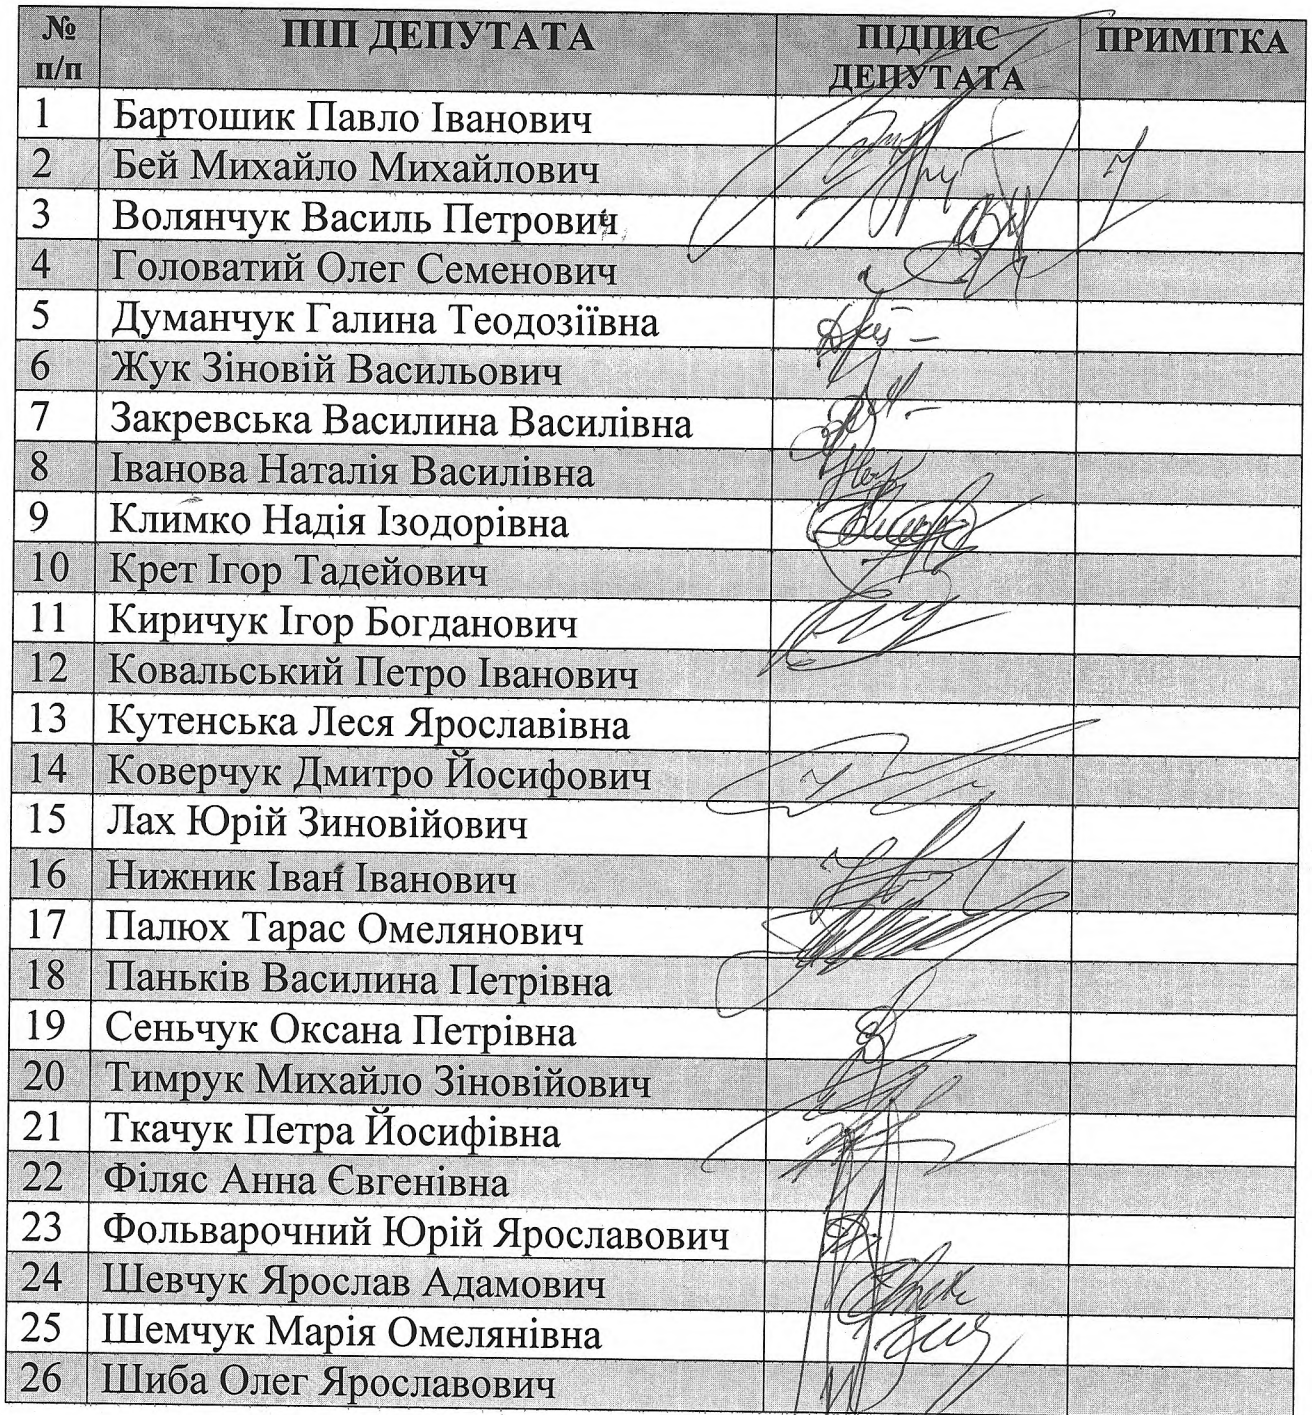 № п/п ПІП ДЕПУТАТА ПІДПИС ДЕПУТАТА ПРИМІТКА
1 Бартошик Павло Іванович
2 Бей Михайло Михайлович
3 Волянчук Василь Петрович
4 Головатий Олег Семенович
5 Думанчук Галина Теодозіївна
6 Жук Зіновій Васильович
7 Закревська Василина Василівна
8 Іванова Наталія Василівна
9 Климко Надія Ізодорівна
10 Крет Ігор Тадейович
11 Киричук Ігор Богданович
12 Ковальський Петро Іванович
13 Кутенська Леся Ярославівна
14 Коверчук Дмитро Йосифович
15 Лах Юрій Зиновійович
16 Нижник Іван Іванович
17 Палюх Тарас Омелянович
18 Паньків Василина Петрівна
19 Сеньчук Оксана Петрівна
20 Тимрук Михайло Зіновійович
21 Ткачук Петра Йосифівна
22 Філяс Анна Євгенівна
23 Фольварочний Юрій Ярославович
24 Шевчук Ярослав Адамович
25 Шемчук Марія Омелянівна
26 Шиба Олег Ярославович